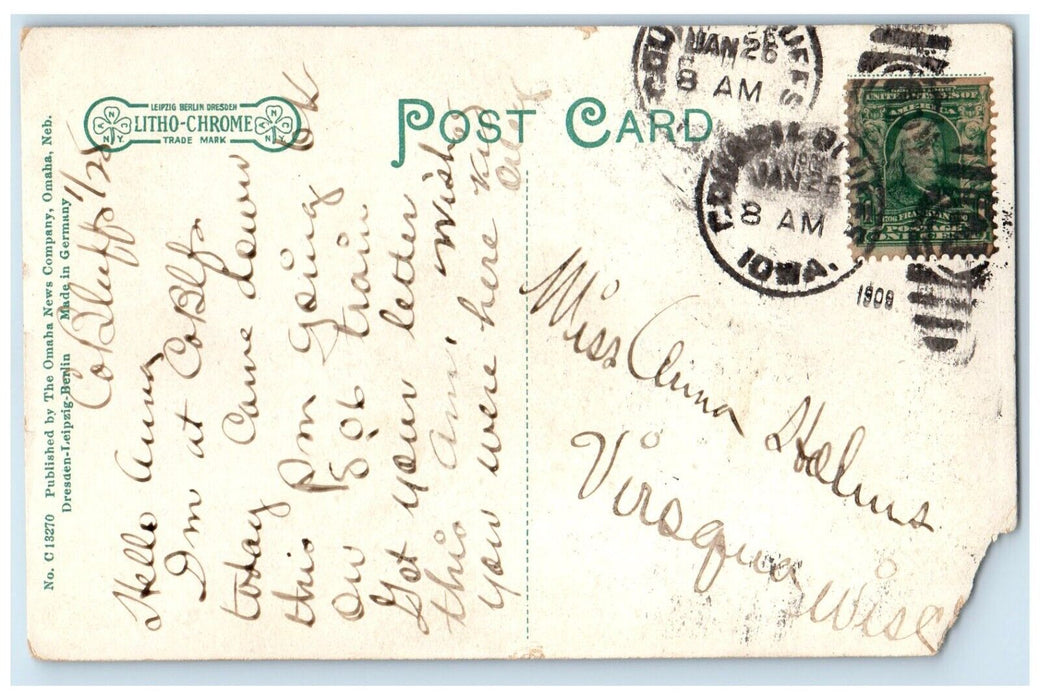 No. C 13270 Published by The Omaha News Company, Omaha, Neb.
Dresden-Leipzig-Berlin Made in Germany
LEIPZIG BERLIN DRESDEN
LITHO-CHROME
TRADE MARK
N N Y
N N Y
POST CARD
Co Bluffs 1/25
Hello Anna
Im at CoBlfs
today Came down
this Pm Going OK
On 506 train
Got your letter
this Am Wish
you were here
COUNCIL BLUFFS
JAN 26
8 AM
COUNCIL BLUFFS
JAN 26
8 AM
IOWA.
1909
UNITED STATES OF
AMERICA
FRANKLIN
POSTAGE
Miss Anna Holms
Viroqua
Wisc